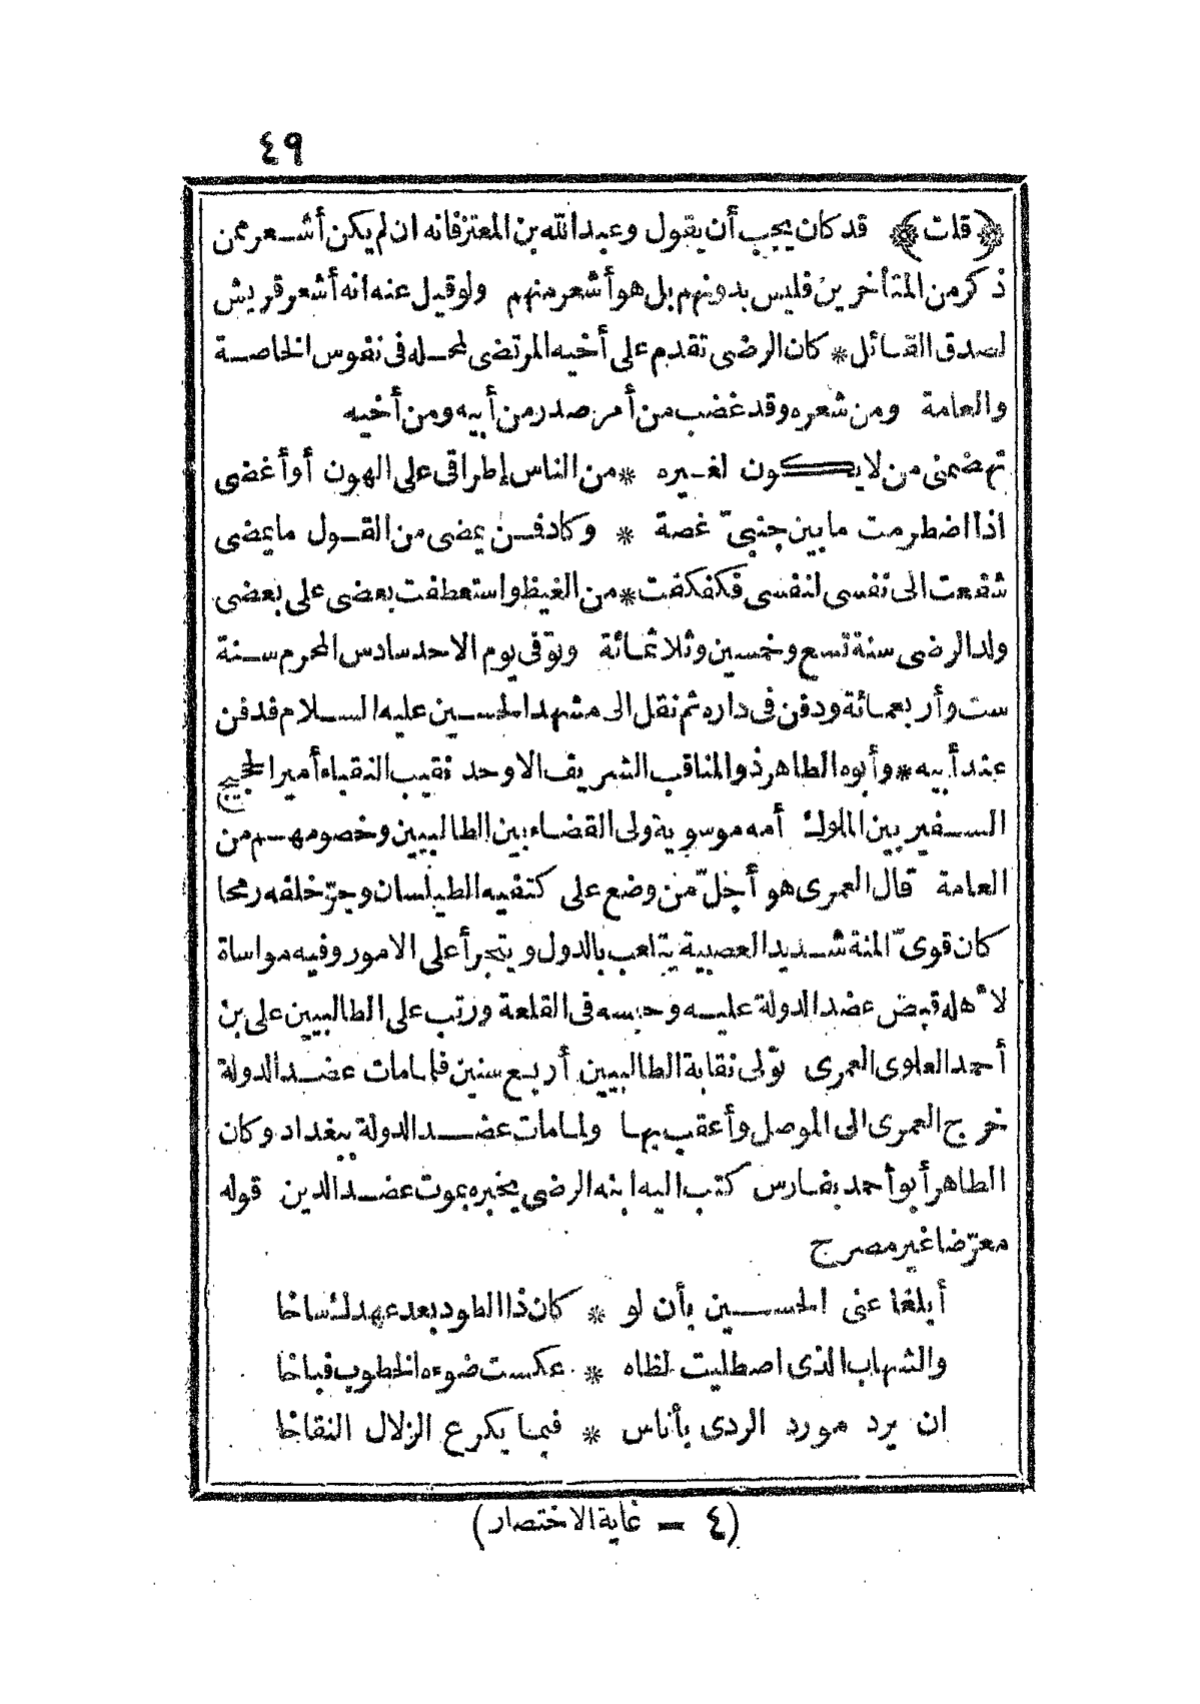 ٤٩
﴿قلت﴾ قد كان يجب أن يقول وعبد الله بن المعتز فانه ان لم يكن أشعر ممن
ذكر من المتأخرين فليس بدونهم بل هو أشعر منهم ولو قيل عنه انه أشعر قريش
لصدق القائل * كان الرضى تقدم على أخيه المرتضى لمحله فى نفوس الخاصة
والعامة ومن شعره وقد غضب من أمر صدر من أبيه ومن أخيه
تهضمنى من لا يكون لغيره * من الناس إطراقى على الهون أو أغضى
اذا اضطرمت ما بين جنبىّ غصة * وكاد فمن يمضى من القول ما يمضى
شفعت الى نفسى لنفسى فكفكفت * من الغيظ واستعطفت بعضى على بعضى
ولد الرضى سنة تسع وخمسين وثلاثمائة وتوفى يوم الاحد سادس المحرم سنة
ست وأربعمائة ودفن فى داره ثم نقل الى مشهد الحسين عليه السلام فدفن
عند أبيه * وأبوه الطاهر ذو المناقب الشريف الاوحد نقيب النقباء أمير الحجيج
السفير بين الملوك أمه موسوية ولى القضاء بين الطالبيين وخصومهم من
العامة قال العمرى هو أجلّ من وضع على كتفيه الطيلسان وجرّ خلفه رمحا
كان قوىّ المنة شديد العصبية يتلعب بالدول ويتجرأ على الامور وفيه مواساة
لاهله قبض عضد الدولة عليه وحبسه فى القلعة ورتب على الطالبيين على بن
أحمد العلوى العمرى تولى نقابة الطالبيين أربع سنين فلما مات عضد الدولة
خرج العمرى الى الموصل وأعقب بها ولما مات عضد الدولة ببغداد وكان
الطاهر أبو أحمد بفارس كتب اليه ابنه الرضى يخبره بموت عضد الدين قوله
معرّضا غير مصرح
أبلغا عنى الحسين بأن لو * كان ذا الطود بعد عهدك ساخا
والشهاب الذى اصطليت لظاه * عكست ضوءه الخطوب فباخا
ان يرد مورد الردى بأناس * فبما يكرع الزلال النقاخا
(٤ – غاية الاختصار)